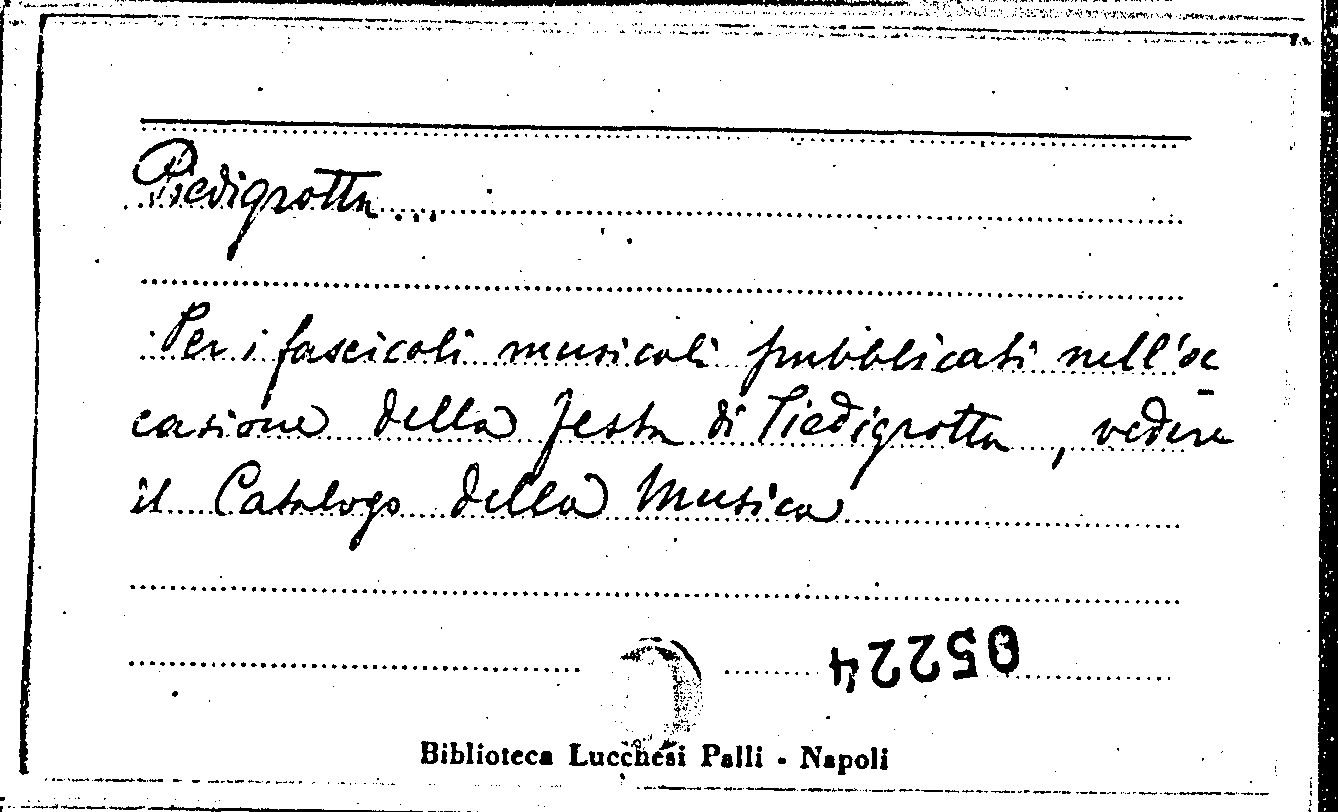 Piedigrotta...
Per i fascicoli musicali pubblicati nell'oc
casione della festa di Piedigrotta, vedere
il Catalogo della Musica
05224
Biblioteca Lucchesi Palli - Napoli